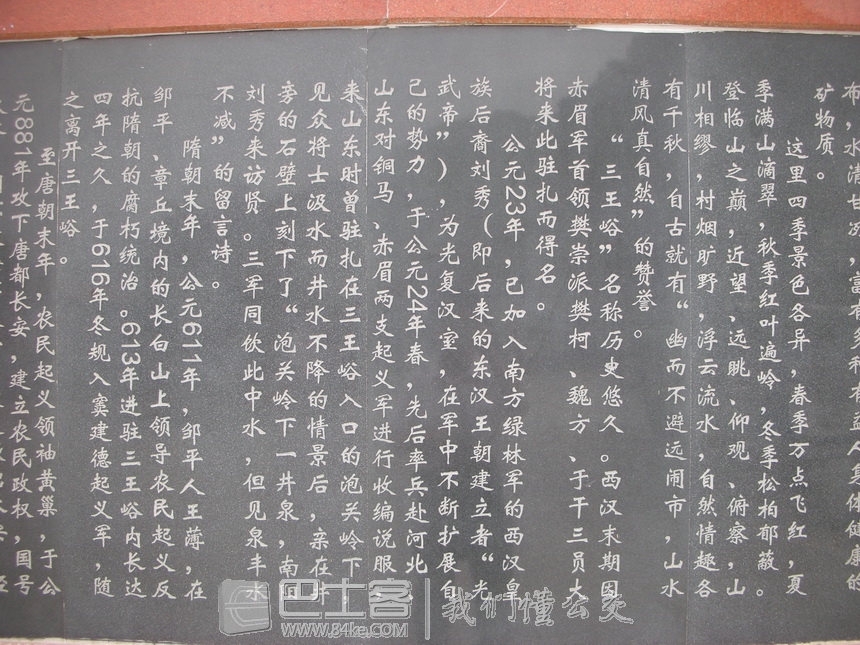 布，水清甘冽，富有多种有益人身体健康的
矿物质。
这里四季景色各异，春季万点飞红，夏
季满山滴翠，秋季红叶遍岭，冬季松柏郁蔽。
登临山之巅，近望、远眺、仰观、俯察，山
川相缪，村烟旷野，浮云流水，自然情趣各
有千秋，自古就有“幽而不避远闹市，山水
清风真自然”的赞誉。
“三王峪”名称历史悠久。西汉末期因
赤眉军首领樊崇派樊柯、魏方、于干三员大
将来此驻扎而得名。
公元23年，已加入南方绿林军的西汉皇
族后裔刘秀（即后来的东汉王朝建立者“光
武帝”），为光复汉室，在军中不断扩展自
己的势力，于公元24年春，先后率兵赴河北、
山东对铜马、赤眉两支起义军进行收编说服，
来山东时曾驻扎在三王峪入口的泡关岭下，
见众将士汲水而井水不降的情景后，亲在井
旁的石壁上刻下了“泡关岭下一井泉，南
刘秀来访贤。三军同饮此中水，但见泉丰水
不减”的留言诗。
隋朝末年，公元611年，邹平人王薄，在
邹平、章丘境内的长白山上领导农民起义反
抗隋朝的腐朽统治。613年进驻三王峪内长达
四年之久，于616年冬规入窦建德起义军，随
之离开三王峪。
至唐朝末年，农民起义领袖黄巢，于公
元881年攻下唐都长安，建立农民政权，国号
巴士客
www.84ke.com
我们懂公交